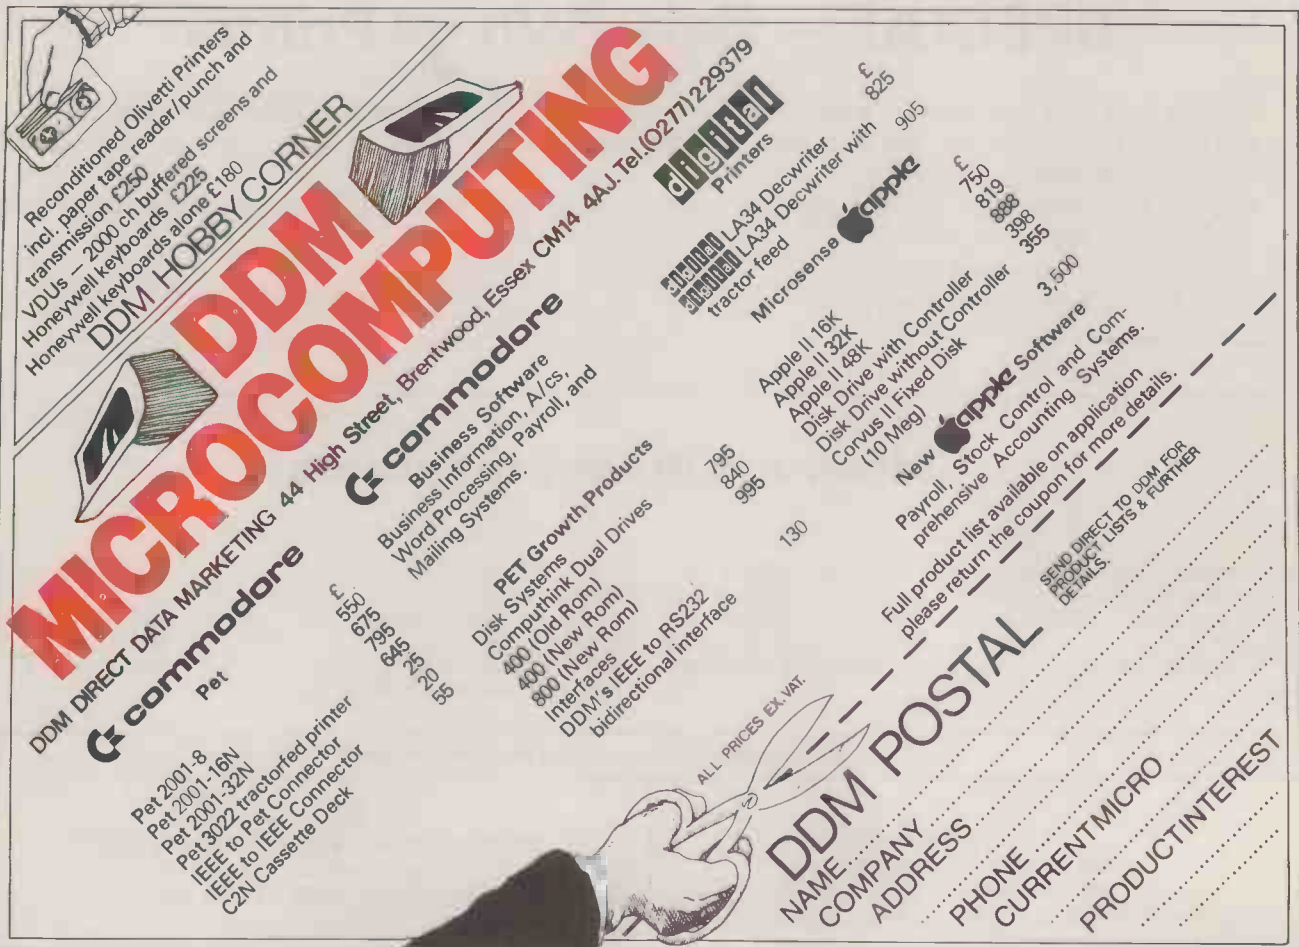 Reconditioned Olivetti Printers
incl. paper tape reader/punch and
transmission £250
VDUs – 2000 ch buffered screens and
Honeywell keyboards £225
Honeywell keyboards alone £180
DDM HOBBY CORNER
DDM
MICROCOMPUTING
DDM DIRECT DATA MARKETING 44 High Street, Brentwood, Essex CM14 4AJ. Tel.(0277) 229379
commodore
Pet
£
Pet 2001-8 550
Pet 2001-16N 675
Pet 2001-32N 795
Pet 3022 tractorfed printer 645
IEEE to Pet Connector 25
IEEE to IEEE Connector 20
C2N Cassette Deck 55
commodore
Business Software
Business Information, A/cs,
Word Processing, Payroll, and
Mailing Systems.
PET Growth Products
Disk Systems
Computhink Dual Drives
400 (Old Rom) 795
400 (New Rom) 840
800 (New Rom) 995
Interfaces
DDM's IEEE to RS232
bidirectional interface 130
digital
Printers
£
digital LA34 Decwriter 825
digital LA34 Decwriter with
tractor feed 905
Microsense apple
£
Apple II 16K 750
Apple II 32K 819
Apple II 48K 888
Disk Drive with Controller 398
Disk Drive without Controller 355
Corvus II Fixed Disk
(10 Meg) 3,500
New apple Software
Payroll, Stock Control and Com-
prehensive Accounting Systems.
Full product list available on application
please return the coupon for more details.
ALL PRICES EX. VAT.
DDM POSTAL
SEND DIRECT TO DDM FOR
PRODUCT LISTS & FURTHER
DETAILS.
NAME
COMPANY
ADDRESS
PHONE
CURRENT MICRO
PRODUCT INTEREST